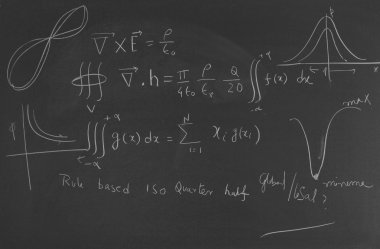 ∇⃗ × E⃗ = ρ/t₀
∭_V ∇⃗ · h = π/4t₀ ρ/tᵣ Q/20 ∬_{-α}^{+α} f(x) dx
∭_{-α}^{+α} g(x) dx = ∑_{i=1}^{N} xᵢ g(xᵢ)
max
Rule based iso Quarter half Global/ minima
?